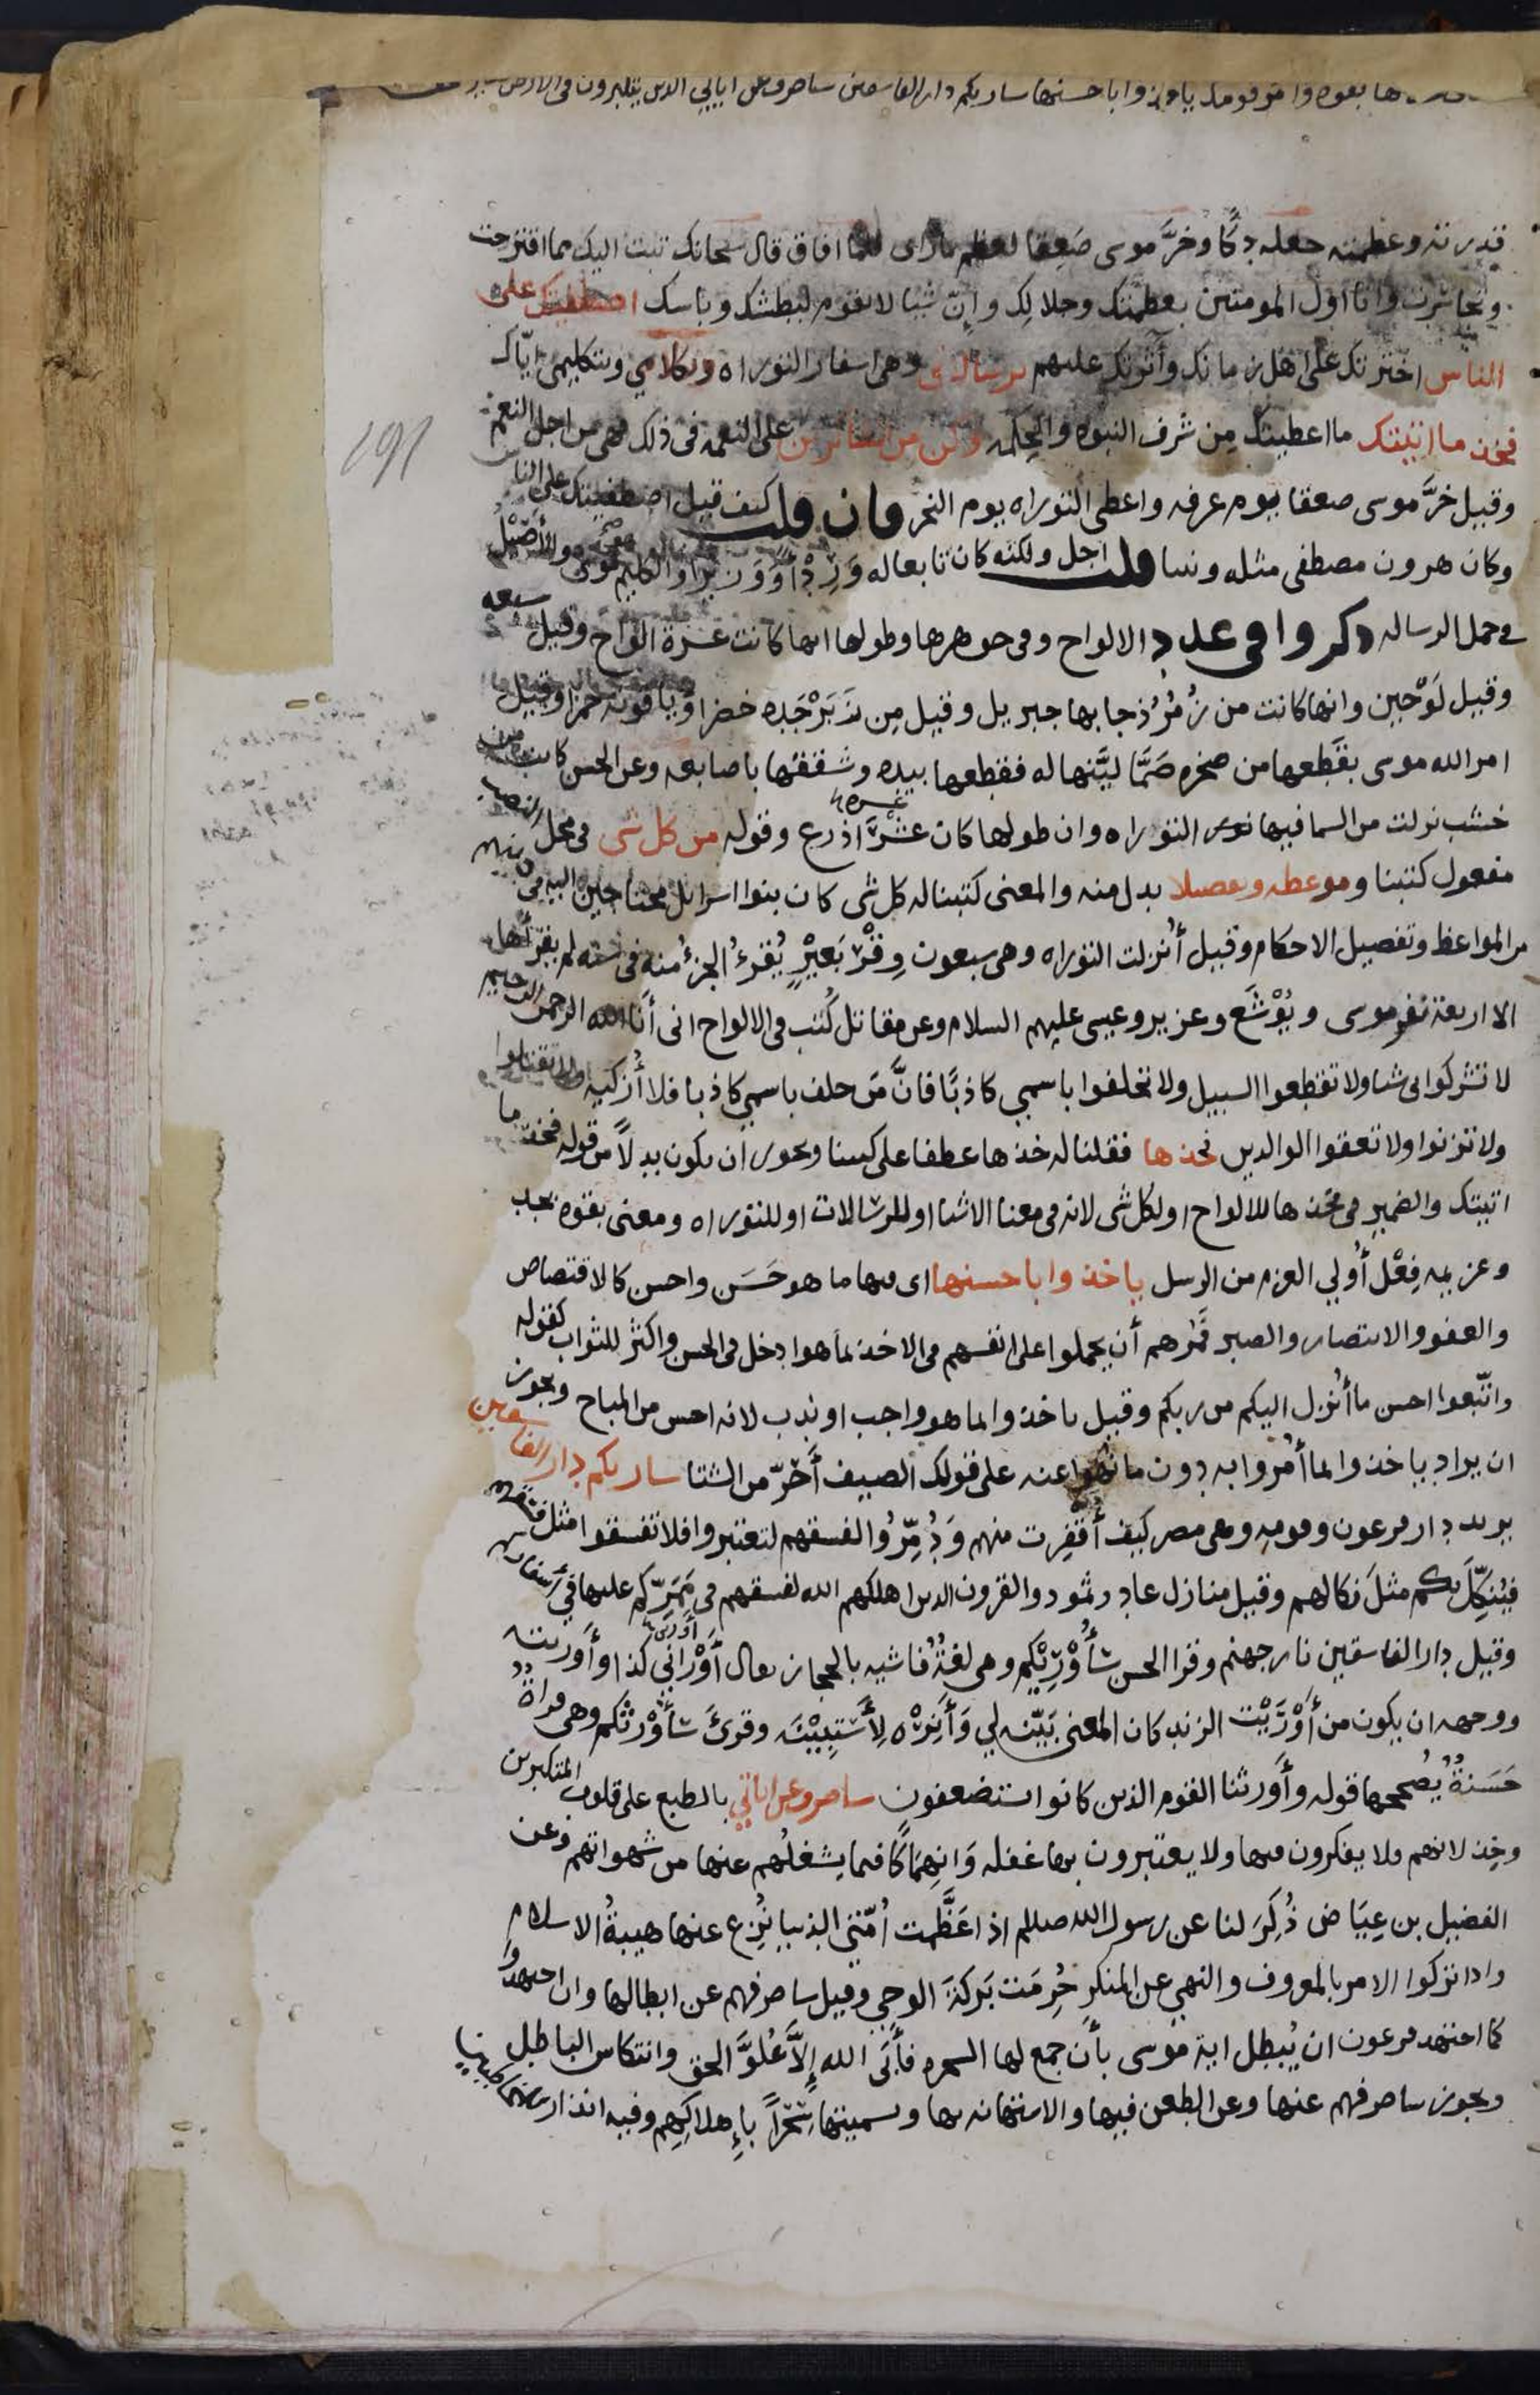 ها بقوه وامر قومك ياخذوا باحسنها ساريكم دار الفاسقين ساصرف عن اياتي الدين يتكبرون فى الارض بغير
قدرته وعظمته جعله دكًّا وخرَّ موسى صَعِقا لعظم ماراى فلما افاق قال سبحانك تبت اليك مما اقترحت
وتجاسرت وانا اول المومنين بعظمتك وجلالك وانّ شيا لا يقوم لبطشك وباسك اصطفيتك على
الناس اخترتك على اهل زمانك وآثرتك عليهم برسالاتى وهى اسفار التوراه وبكلامي وبتكليمى ايّاك
فخذ ما اتيتك ما اعطيتك مِن شرف النبوه والحكمه وكن من الشاكرين على النعمه فى ذلك فهى من اجل النعم
وقيل خرَّ موسى صعقا يوم عرفه واعطى التوراه يوم النحر فان قلت كيف قيل اصطفيتك على الناس
وكان هرون مصطفى مثله ونبيا قلت اجل ولكنه كان تابعا له وَرِدْأً وَوزيرا والكليم هو موسى والأَصْيلُ
فى حمل الرساله ذكروا فى عدد الالواح وفى جوهرها وطولها انها كانت عشرة الواح وقيل سبعه
وقيل لَوْحَين وانها كانت من زُمُرُّذ جا بها جبريل وقيل مِن زَبَرْجَده خضرا وياقوته حمرا وقيل
امر الله موسى بقطعها من صخره صَمَّا ليَّنها له فقطعها بيده وشققها باصابعه وعن الحسن كانت من
خشب نزلت من السما فيها التوراه وان طولها كان عشرة اذرع وقوله من كل شى فى محل النصب
مفعول كتبنا وموعظه وتفصيلا بدل منه والمعنى كتبنا له كل شى كان بنوا اسرايل محتاجين اليه فى دينهم
من المواعظ وتفصيل الاحكام وقيل أُنزلت التوراه وهى سبعون وِقْرَ بَعِيْرٍ يُقْرَءُ الجزءُ منه فى سنه لم يقرأها
الا اربعة نفر موسى ويُوْشَع وعزير وعيسى عليهم السلام وعن مقاتل كُتب فى الالواح انى أَنا الله الرحمن الرحيم
لا تشركوا بى شيا ولا تقطعوا السبيل ولا تحلفوا باسمي كاذبًا فانَّ مَن حلف باسمي كاذبا فلا أُزكيه ولا تقتلوا
ولا تزنوا ولا تعقوا الوالدين فخذها فقلنا له خذها عطفا على كتبنا ويجوز ان يكون بدلًا من قوله فخذ ما
اتيتك والضمير فى فخذها للالواح او لكل شى لانه فى معنا الاشيا او للرسالات او للتوراه ومعنى بقوه بجد
وعزيمه فِعْلَ أُولي العزم من الرسل ياخذوا باحسنها اى فيها ما هو حَسَن واحسن كالاقتصاص
والعفو والانتصار والصبر فَمُرْهم أن يحملوا على انفسهم فى الاخذ بما هو ادخل فى الحسن واكثر للثواب كقوله
واتَّبعوا احسن ما أُنزل اليكم من ربكم وقيل ياخذوا بما هو واجب او ندب لانه احسن من المباح ويجوز
ان يراد ياخذوا بما أُمروا به دون ما نُهوا عنه على قولك الصيف أَحَرّ من الشتا ساريكم دار الفاسقين
يريد دار فرعون وقومه وهى مصر كيف أَقفِرت منهم وَدُمِّرُوا لفسقهم لتعتبروا فلا تفسقوا مثل فسقهم
فيُنَكِّلَ بكم مثلَ نكالهم وقيل منازل عاد وثمود والقرون الذين اهلكهم الله لفسقهم فى مَمَرِّكم عليها في أسفاركم
وقيل دار الفاسقين نار جهنم وقرا الحسن سَأُوْرِيْكم وهى لغةٌ فاشيه بالحجاز يقال أَوْرَانِي كذا وأَوريته
ووجهه ان يكون من أَوْرَيْت الزند كان المعنى بَيِّنه لي وَأَنِرْه لِأَستبِيْنَه وقرئَ سَأُوْرِثكم وهى قراةٌ
حَسَنةٌ يُصححها قوله وأَورثنا القوم الذين كانوا يستضعفون ساصرف عن اياتي بالطبع على قلوب المتكبرين
وخِذلانهم فلا يفكرون فيها ولا يعتبرون بها غفله وَانهِمَاكًا فيما يشغلُهم عنها من شهواتهم وعن
الفضيل بن عِيَاض ذُكِرَ لنا عن رسول الله صللم اذا عَظَّمت اُمّتي الدنيا نُزِع عنها هيبةُ الاسلام
واذا تركوا الامر بالمعروف والنهي عن المنكر حُرِمَت بَركةَ الوحي وقيل ساصرفهم عن ابطالها وان اجتهدوا
كما اجتهد فرعون ان يُبطل اية موسى بأن جمع لها السحره فأَبَى الله إِلَّا عُلوَّ الحق وانتكاس الباطل
ويجوز ساصرفهم عنها وعن الطعن فيها والاستهانه بها وتسميتها سِحْرًا بإِهلاكِهِم وفيه انذار للمخاطبين